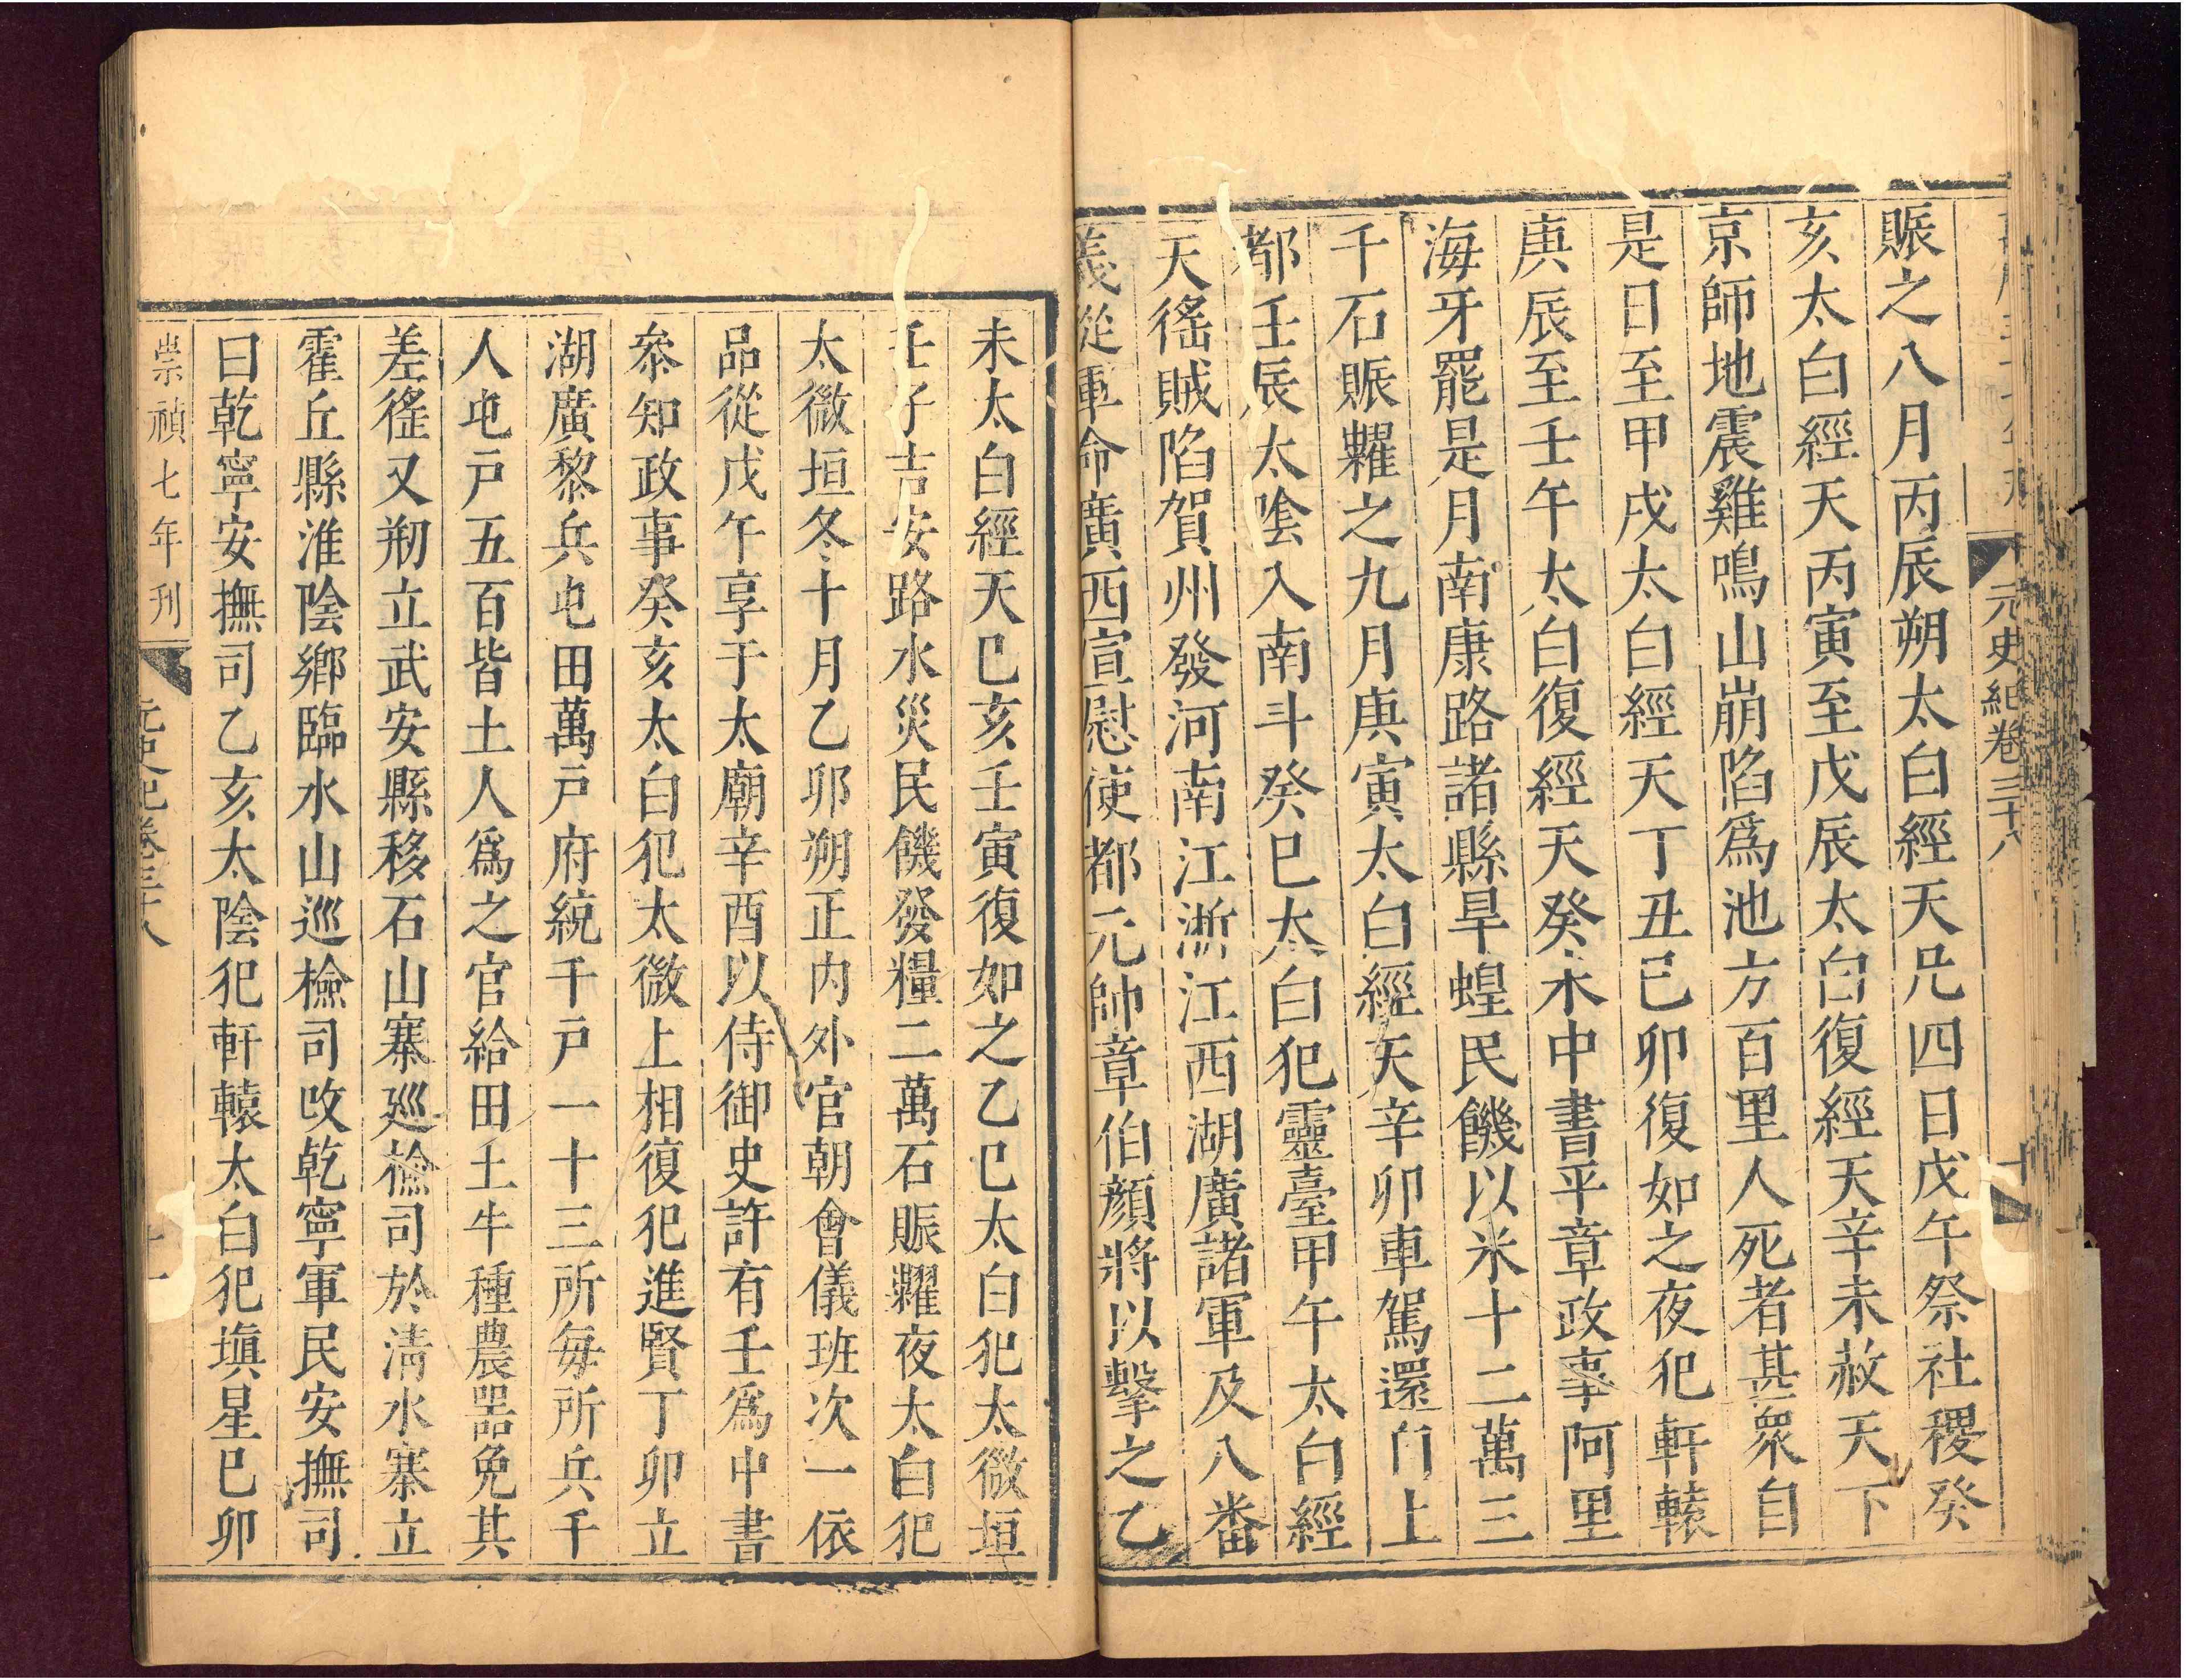 元史紀卷三十八
十
賑之八月丙辰朔太白經天凡四日戊午祭社稷癸
亥太白經天丙寅至戊辰太白復經天辛未赦天下
京師地震雞鳴山崩陷爲池方百里人死者甚衆自
是日至甲戌太白經天丁丑巳卯復如之夜犯軒轅
庚辰至壬午太白復經天癸未中書平章政事阿里
海牙罷是月南康路諸縣旱蝗民饑以米十二萬三
千石賑糶之九月庚寅太白經天辛卯車駕還自上
都壬辰太陰入南斗癸巳太白犯靈臺甲午太白經
天徭賊陷賀州發河南江浙江西湖廣諸軍及八番
義從軍命廣西宣慰使都元帥章伯顏將以擊之乙
未太白經天巳亥壬寅復如之乙巳太白犯太微垣
壬子吉安路水災民饑發糧二萬石賑糶夜太白犯
太微垣冬十月乙卯朔正内外官朝會儀班次一依
品從戊午享于太廟辛酉以侍御史許有壬爲中書
叅知政事癸亥太白犯太微上相復犯進賢丁卯立
湖廣黎兵屯田萬戸府統千戸一十三所每所兵千
人屯戸五百皆土人爲之官給田土牛種農噐免其
差徭又剏立武安縣移石山寨廵檢司於清水寨立
霍丘縣淮陰鄉臨水山巡檢司改乾寧軍民安撫司
曰乾寧安撫司乙亥太陰犯軒轅太白犯塡星巳卯
崇禎七年刋
元史紀卷三十八
十一